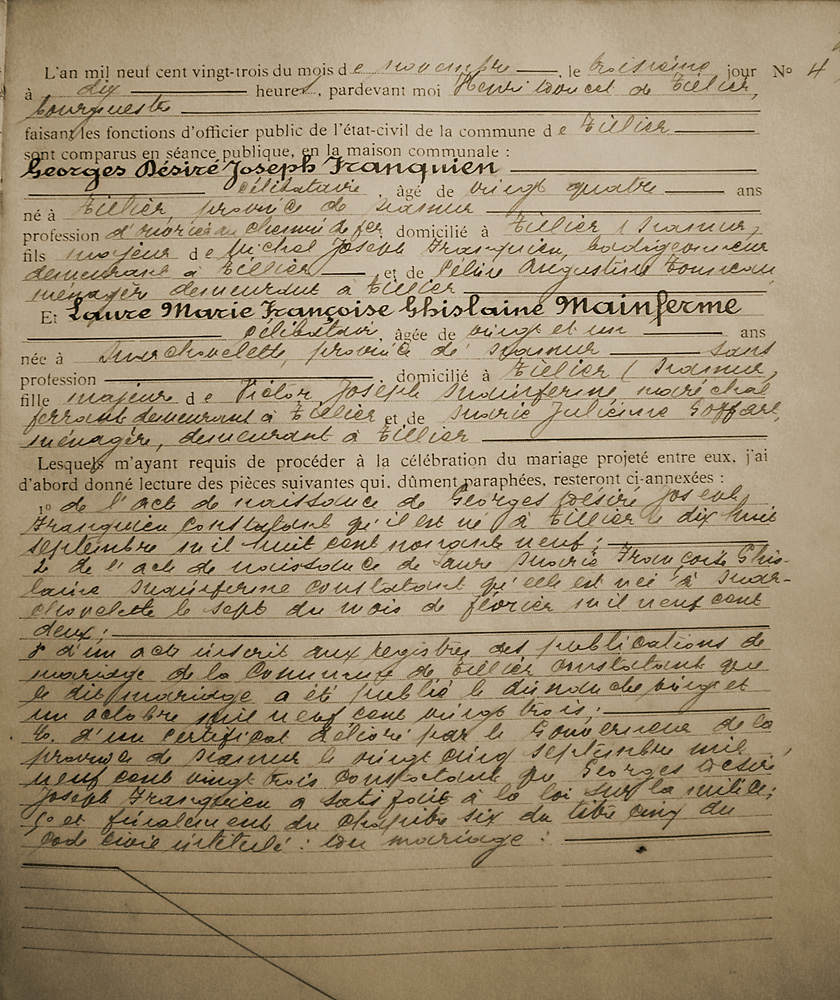 L'an mil neuf cent vingt-trois du mois de novembre, le troisième jour No 4
à dix heures, pardevant moi Henri Doucet de Tillier,
bourgmestre
faisant les fonctions d'officier public de l'état-civil de la commune de Tillier
sont comparus en séance publique, en la maison communale :
Georges Désiré Joseph Franquien
célibataire, âgé de vingt quatre ans
né à Tillier, province de Namur
profession d'ouvrier au chemin de fer, domicilié à Tillier (Namur,
fils majeur de Michel Joseph Franquien, badigeonneur
demeurant à Tillier et de Céline Augustine
ménagère demeurant à Tillier
Et Laure Marie Françoise Ghislaine Mainferme
célibatair, âgée de vingt et un ans
née à Marchovelette, province de Namur sans
profession, domicilié à Tillier (Namur,
fille majeure de Victor Joseph Mainferme, maréchal
ferrant demeurant à Tillier et de Marie Julienne Goffart,
ménagère, demeurant à Tillier
Lesquels m'ayant requis de procéder à la célébration du mariage projeté entre eux, j'ai
d'abord donné lecture des pièces suivantes qui, dûment paraphées, resteront ci-annexées :
1° de l'acte de naissance de Georges Désiré Joseph
Franquien constatant qu'il est né à Tillier le dix huit
septembre mil huit cent nonante neuf ;
2° de l'acte de naissance de Laure Marie Françoise Ghis-
laine Mainferme constatant qu'elle est née à Mar-
chovelette le sept du mois de février mil neuf cent
deux ;
3° d'un acte inscrit aux registres des publications de
mariage de la Commune de Tillier constatant que
le dit mariage a été publié le dimanche vingt et
un octobre mil neuf cent vingt trois ;
4. d'un certificat délivré par le Gouverneur de la
province de Namur le vingt cinq septembre mil
neuf cent vingt trois constatant que Georges Désiré
Joseph Franquien a satisfait à la loi sur la milice ;
5° et finalement du chapitre six du titre cinq du
Code civil intitulé : du mariage :